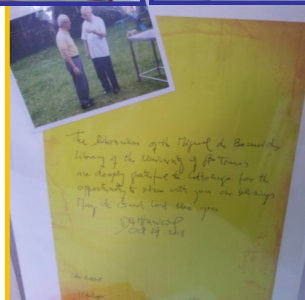 The librarians of the Miguel de Benavides
Library of the University of Sto Tomas
are deeply grateful to for the
opportunity to share with you our blessings
May the Good Lord bless you
Oct 29